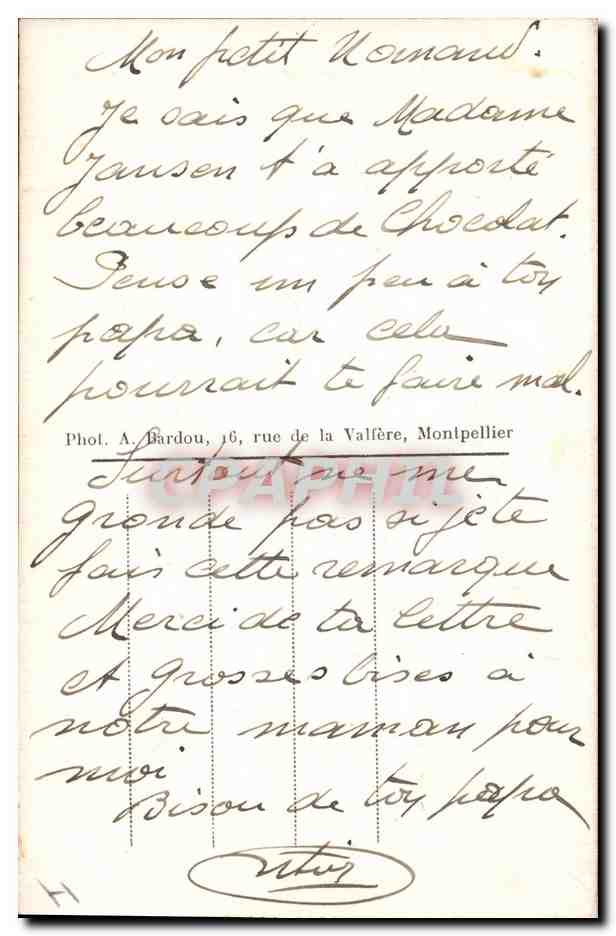 Mon petit Normand.
Je sais que Madame
Jansen t'a apporté
beaucoup de Chocolat.
Pense un peu à ton
papa, car cela
pourrait te faire mal.
Phot. A. Bardou, 16, rue de la Valfère, Montpellier
Surtout ne me
gronde pas si je te
fais cette remarque
Merci de ta lettre
et grosses bises à
notre maman pour
moi
Bisou de ton papa
CPAPHIL